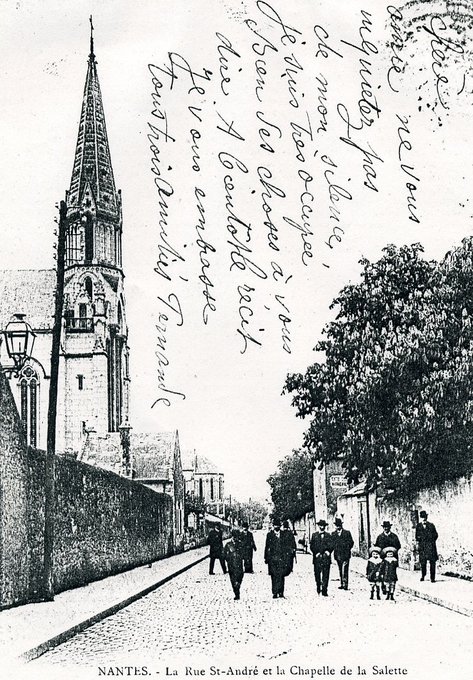 amie ne vous
inquietez pas
de mon silence,
je suis très occupée
Bien des choses à vous
dire A bientôt le récit
Je vous embrasse
Tous trois amitiés Fernande
NANTES. - La Rue St-André et la Chapelle de la Salette